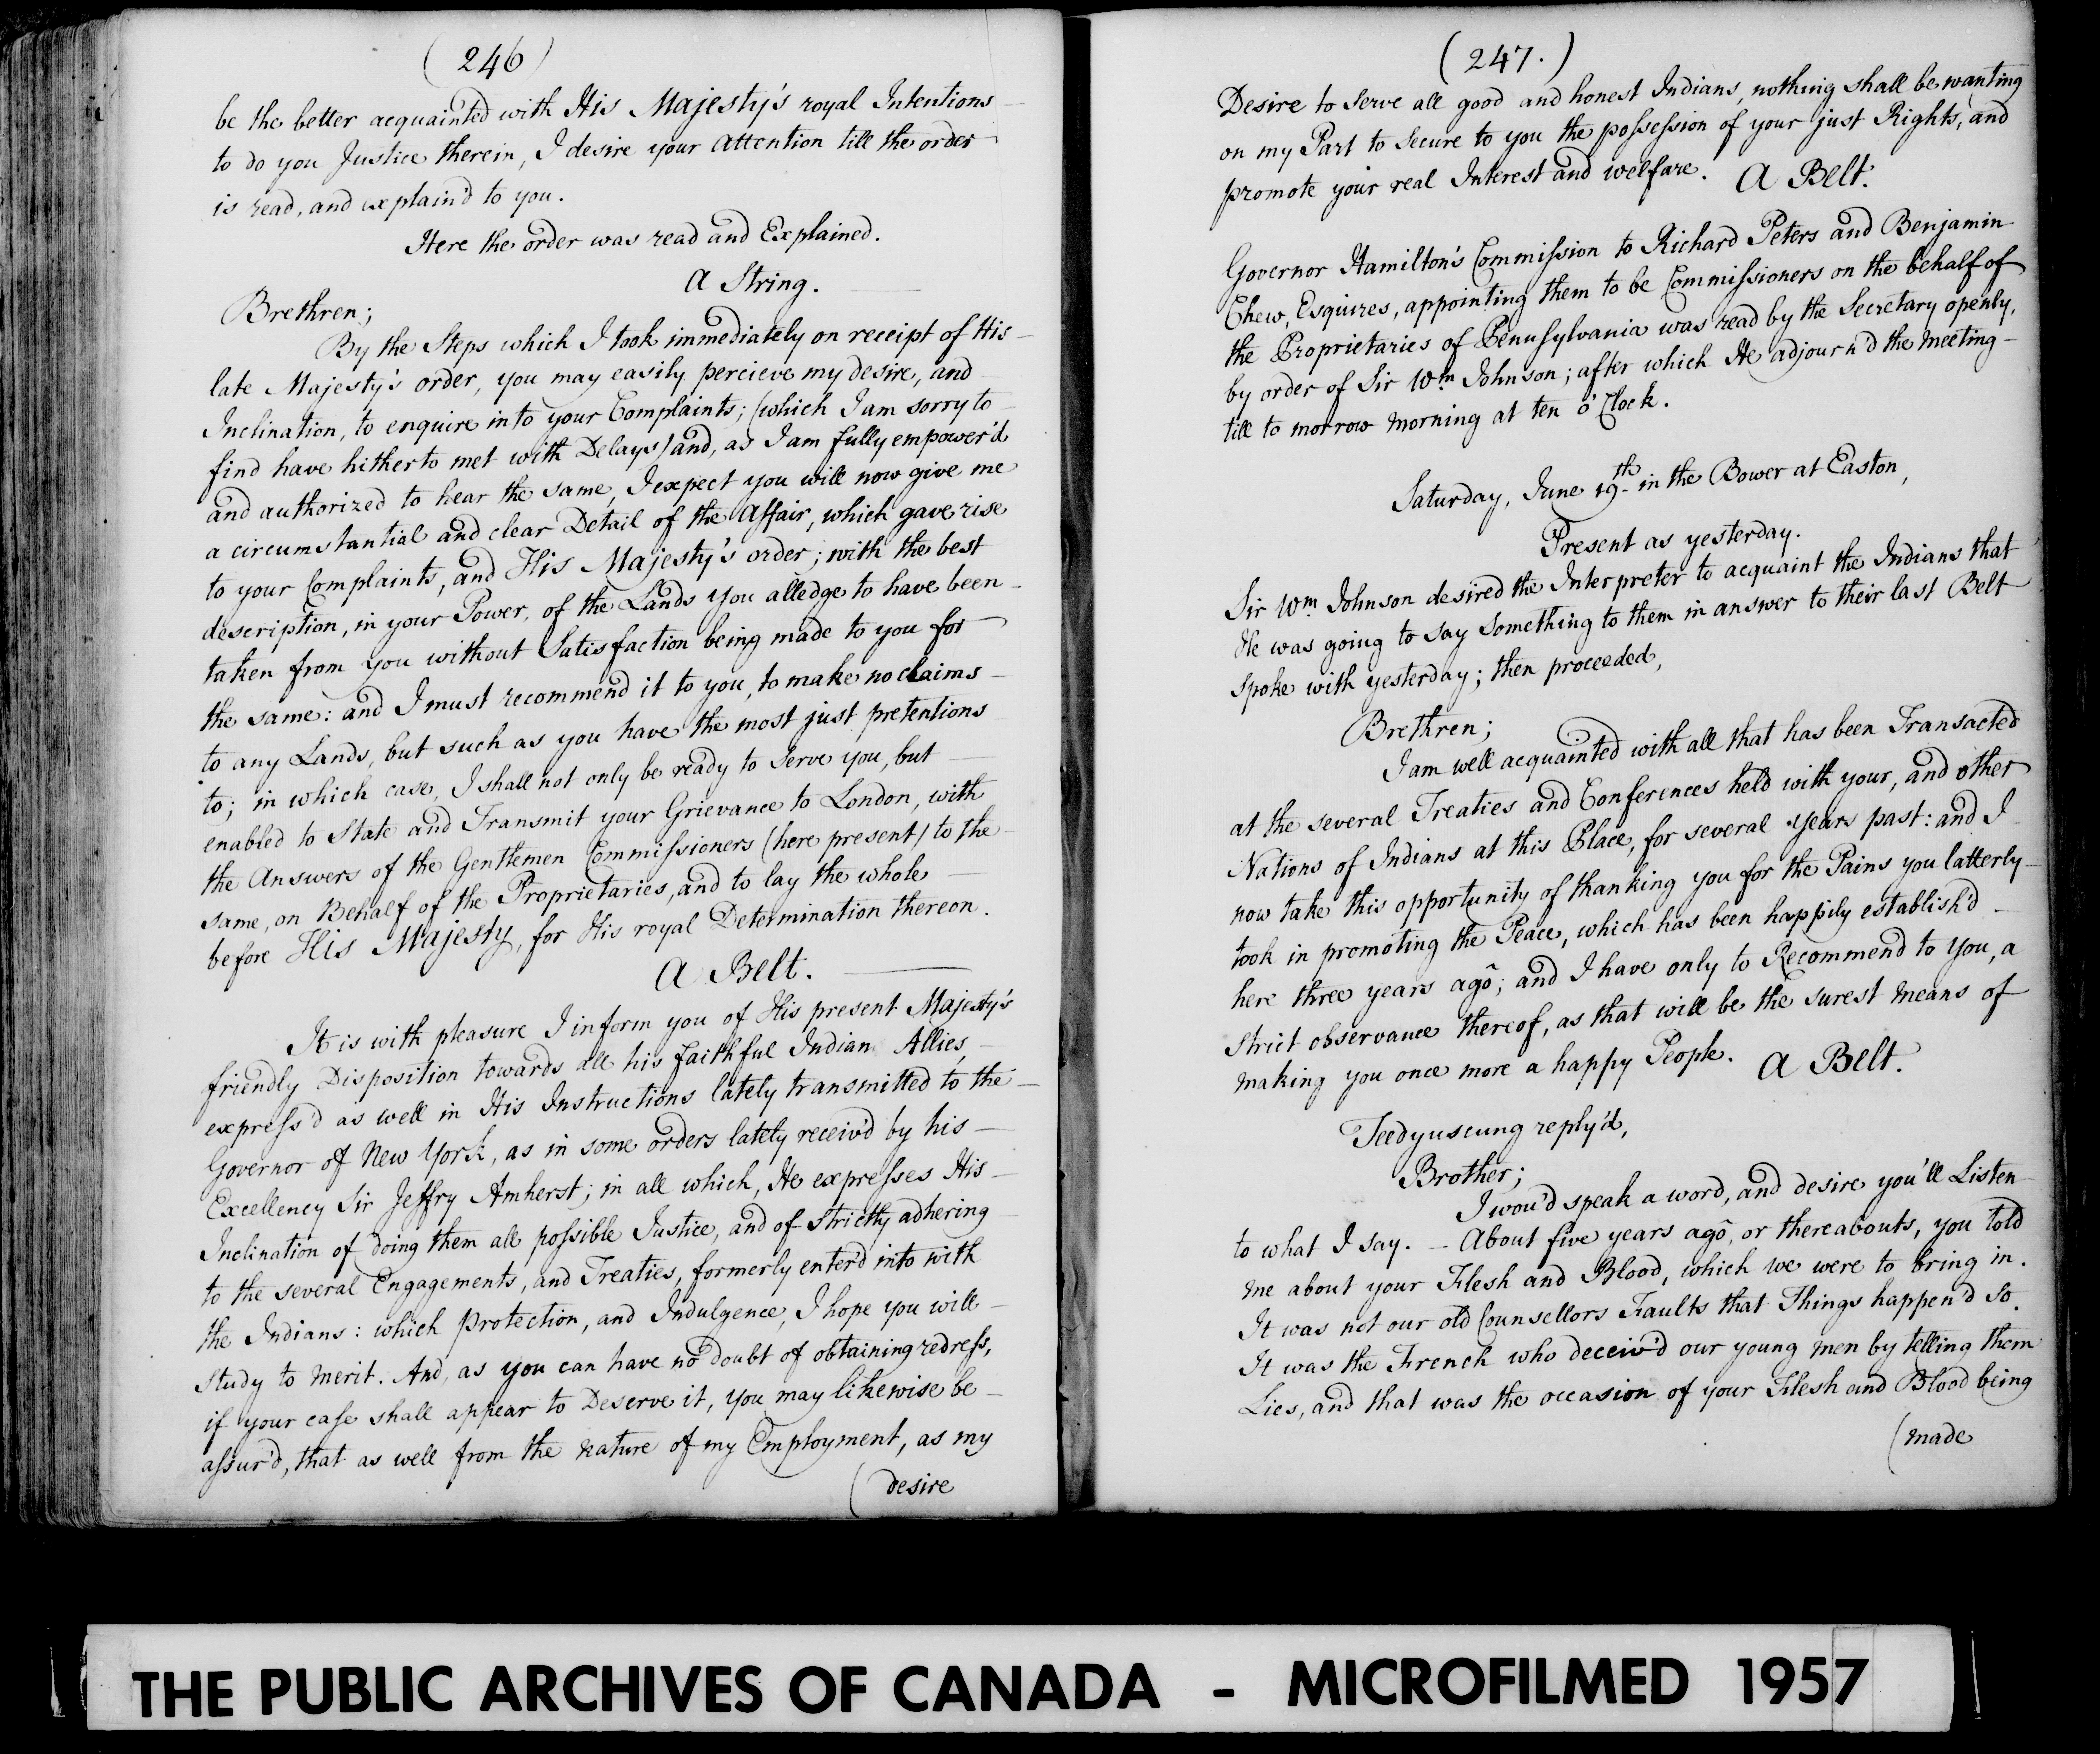 (246)
be the better acquainted with His Majesty's royal Intentions
to do you Justice therein, I desire your Attention till the order
is read, and explain'd to you.
Here the order was read and Explained.
A String.
Brethren;
By the Steps which I took immediately on receipt of His
late Majesty's order, you may easily percieve my desire, and
Inclination, to enquire into your Complaints; (which I am sorry to
find have hitherto met with Delays) and, as I am fully empower'd
and authorized to hear the same, I expect you will now give me
a circumstantial and clear Detail of the Affair, which gave rise
to your Complaints, and His Majesty's order; with the best
description, in your Power, of the Lands you alledge to have been
taken from you without Satisfaction being made to you for
the same: and I must recommend it to you, to make no claims
to any Lands, but such as you have the most just pretentions
to; in which case, I shall not only be ready to serve you, but
enabled to State and Transmit your Grievance to London, with
the Answers of the Gentlemen Commissioners (here present) to the
same, on Behalf of the Proprietaries, and to lay the whole
before His Majesty, for His royal Determination thereon.
A Belt.
It is with pleasure I inform you of His present Majesty's
friendly Disposition towards all his faithful Indian Allies,
express'd as well in His Instructions lately transmitted to the
Governor of New York, as in some orders lately receiv'd by his
Excellency Sir Jeffry Amherst; in all which, He expresses His
Inclination of doing them all possible Justice, and of strictly adhering
to the several Engagements, and Treaties, formerly enter'd into with
the Indians: which Protection, and Indulgence, I hope you will
study to merit. And, as you can have no doubt of obtaining redress,
if your case shall appear to Deserve it, you may likewise be
assur'd, that as well from the nature of my Employment, as my
(desire
(247.)
Desire to serve all good and honest Indians, nothing shall be wanting
on my Part to secure to you the possession of your just Rights, and
promote your real Interest and welfare. A Belt.
Governor Hamilton's Commission to Richard Peters and Benjamin
Chew, Esquires, appointing them to be Commissioners on the behalf of
the Proprietaries of Pennsylvania was read by the Secretary openly,
by order of Sir Wm Johnson; after which He adjourn'd the meeting
till to morrow morning at ten o'Clock.
Saturday, June 19th. in the Bower at Easton,
Present as yesterday.
Sir Wm Johnson desired the Interpreter to acquaint the Indians that
He was going to say something to them in answer to their last Belt
spoke with yesterday; then proceeded,
Brethren;
I am well acquainted with all that has been Transacted
at the several Treaties and Conferences held with your, and other
Nations of Indians at this Place, for several years past: and I
now take this opportunity of thanking you for the Pains you latterly
took in promoting the Peace, which has been happily establish'd
here three years ago; and I have only to Recommend to you, a
strict observance thereof, as that will be the surest means of
making you once more a happy People. A Belt.
Teedyuscung reply'd,
Brother;
I wou'd speak a word, and desire you'll Listen
to what I say. - About five years ago, or thereabouts, you told
me about your Flesh and Blood, which we were to bring in.
It was not our old Counsellors Faults that Things happen'd so.
It was the French who deceiv'd our young men by telling them
Lies, and that was the occasion of your Flesh and Blood being
(made
THE PUBLIC ARCHIVES OF CANADA - MICROFILMED 1957